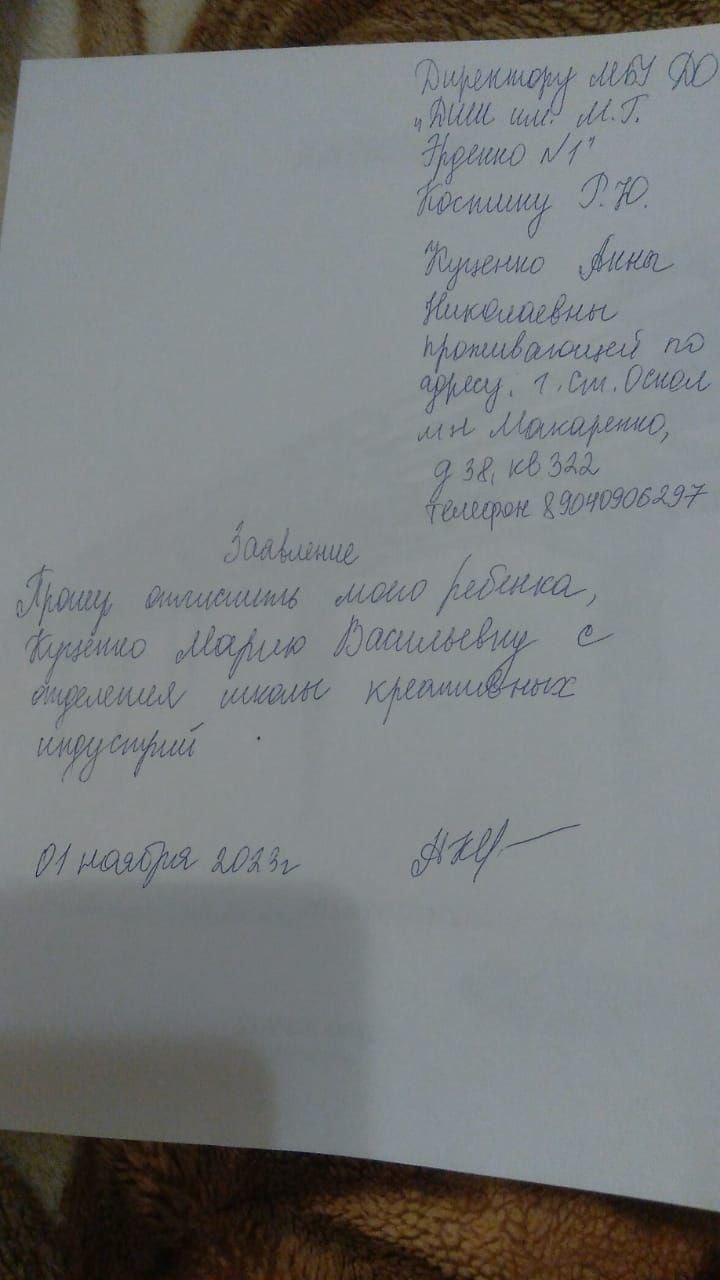 Директору МБУ ДО
"ДШИ им. М.Г.
Эрденко №1"
Костину Р.Ю.
Куценко Анны
Николаевны
проживающей по
адресу. г. Ст. Оскол
м-н Макаренко,
д 38, кв 322
телефон 89040906297
Заявление
Прошу отчислить моего ребенка,
Куценко Марию Васильевну с
отделения школы креативных
индустрий
01 ноября 2023г